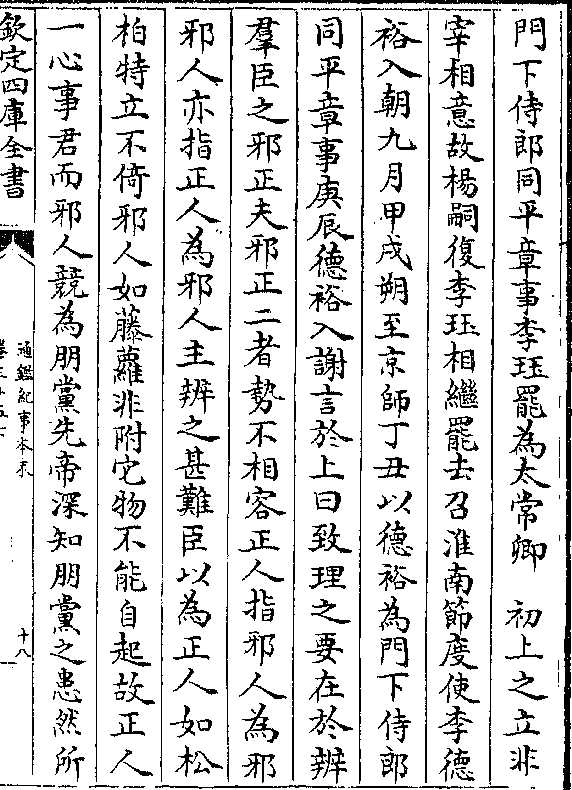 門下侍郎同平章事李珏罷為太常卿　初上之立非
宰相意故楊嗣復李珏相繼罷去召淮南節度使李德
裕入朝九月甲戌朔至京師丁丑以德裕為門下侍郎
同平章事庚辰德裕入謝言於上曰致理之要在於辨
羣臣之邪正夫邪正二者勢不相容正人指邪人為邪
邪人亦指正人為邪人主辨之甚難臣以為正人如松
柏特立不倚邪人如藤蘿非附它物不能自起故正人
一心事君而邪人競為朋黨先帝深知朋黨之患然所
欽定四庫全書
通鑑紀事本末
十八